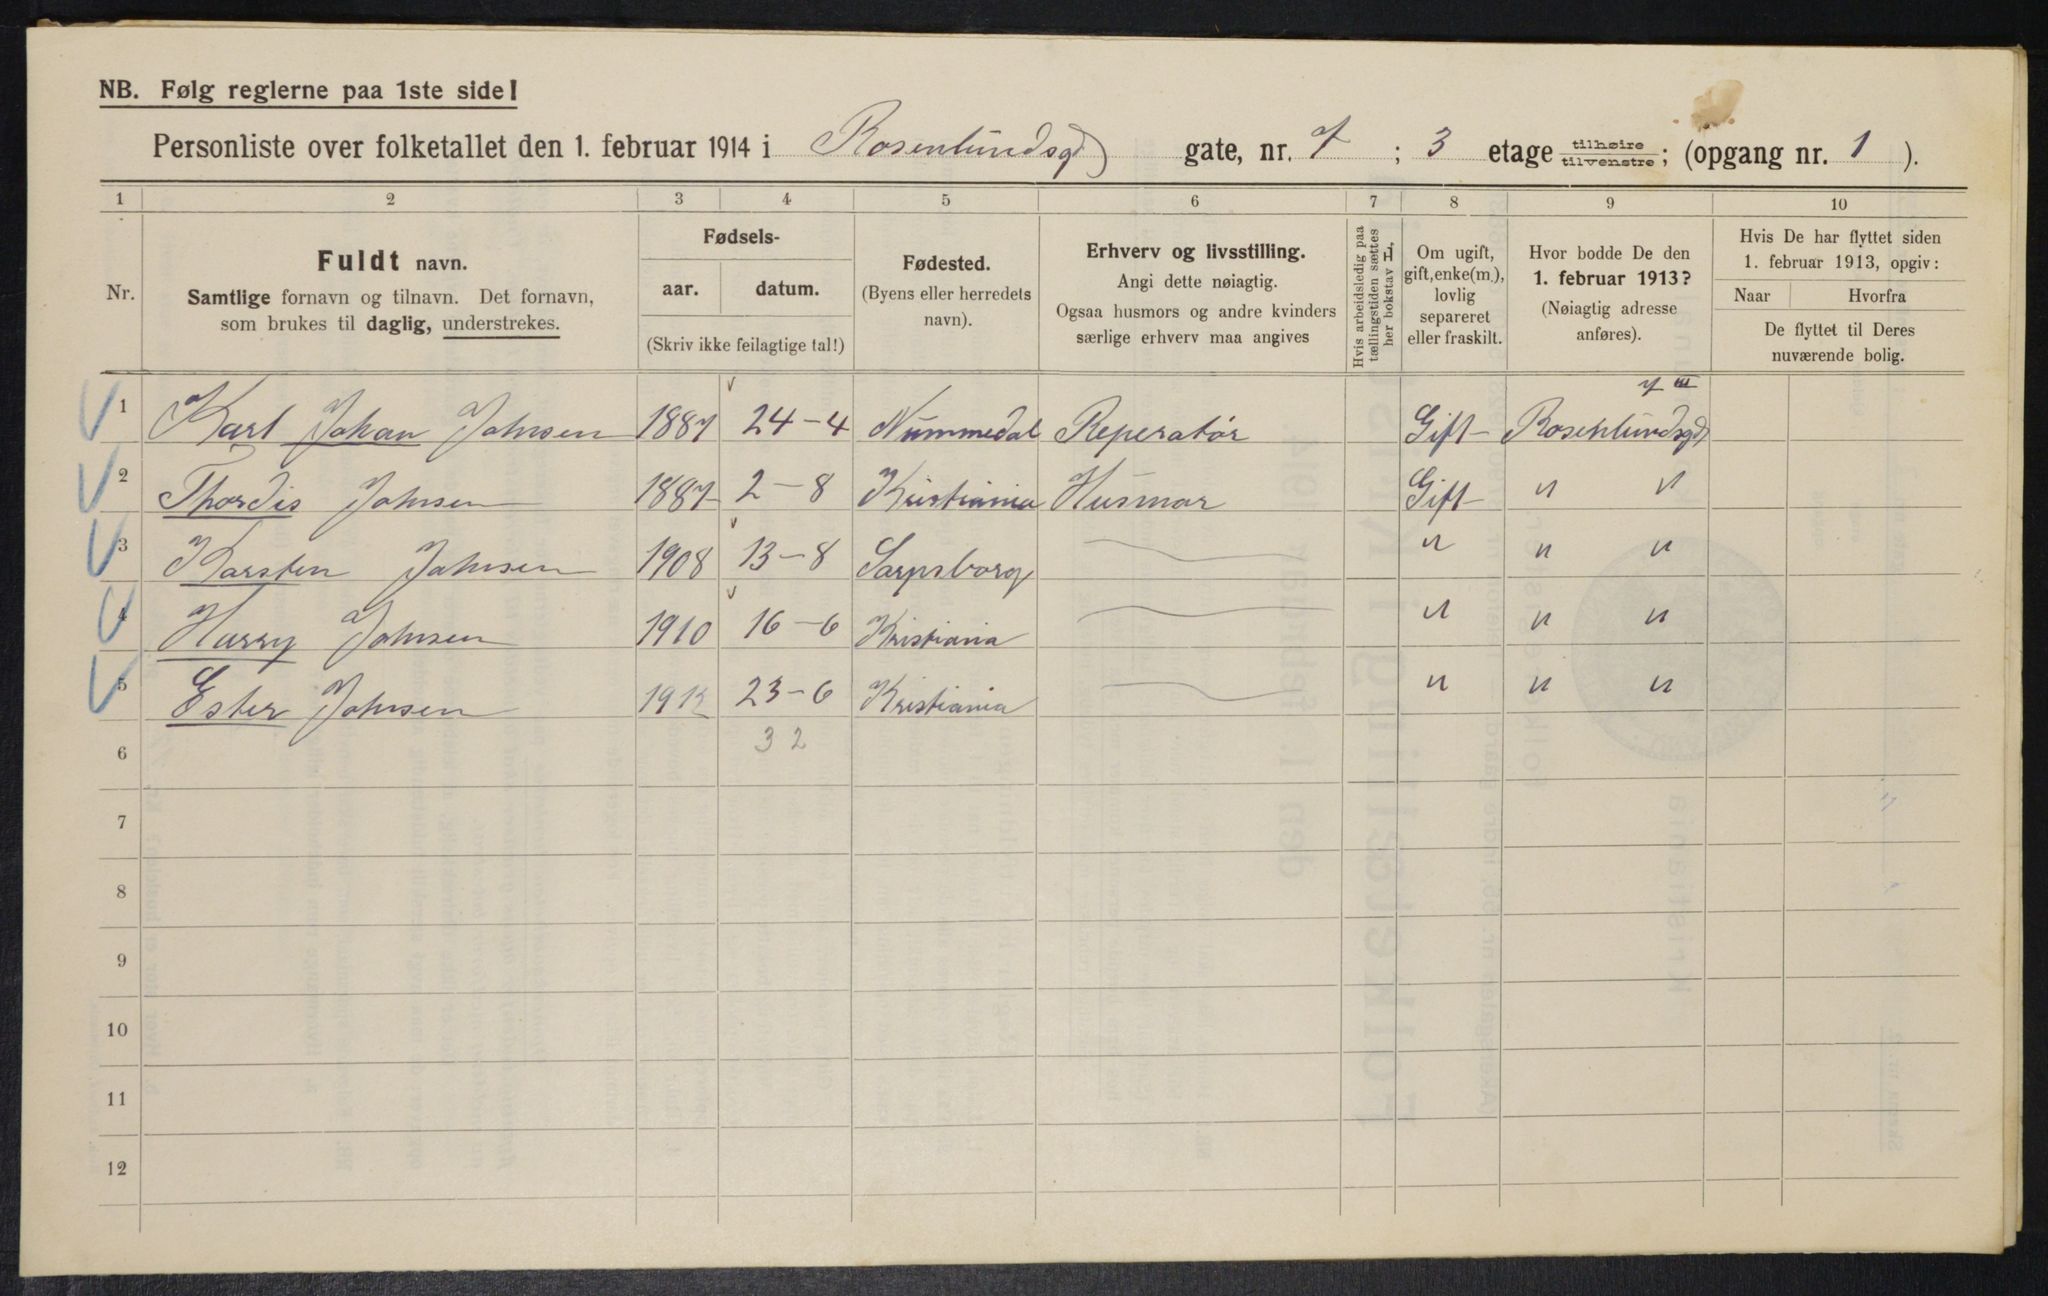 NB. Følg reglerne paa 1ste side!
Personliste over folketallet den 1. februar 1914 i Rosenlundsgd gate, nr. 7 ; 3 etage tilhøire tilvenstre ; (opgang nr. 1 ).
1 2 3 4 5 6 7 8 9 10
Nr.
Fuldt navn.
Samtlige fornavn og tilnavn. Det fornavn,
som brukes til daglig, understrekes.
Fødsels-
aar. datum.
(Skriv ikke feilagtige tal!)
Fødested.
(Byens eller herredets
navn).
Erhverv og livsstilling.
Angi dette nøiagtig.
Ogsaa husmors og andre kvinders
særlige erhverv maa angives
Hvis arbeidsledig paa
tællingstiden sættes
her bokstav L.
Om ugift,
gift, enke(m.),
lovlig
separeret
eller fraskilt.
Hvor bodde De den
1. februar 1913?
(Nøiagtig adresse
anføres).
Hvis De har flyttet siden
1. februar 1913, opgiv:
Naar Hvorfra
De flyttet til Deres
nuværende bolig.
7 III
1 Karl Johan Johnsen 1887 24-4 Nummedal Reperatør Gift Rosenlundsgd
2 Thordis Johnsen 1887 2-8 Kristiania Husmor Gift " "
3 Karsten Johnsen 1908 13-8 Sarpsborg " " "
4 Harry Johnsen 1910 16-6 Kristiania " " "
5 Ester Johnsen 1912 23-6 Kristiania " " "
6 3 2
7
8
9
10
11
12